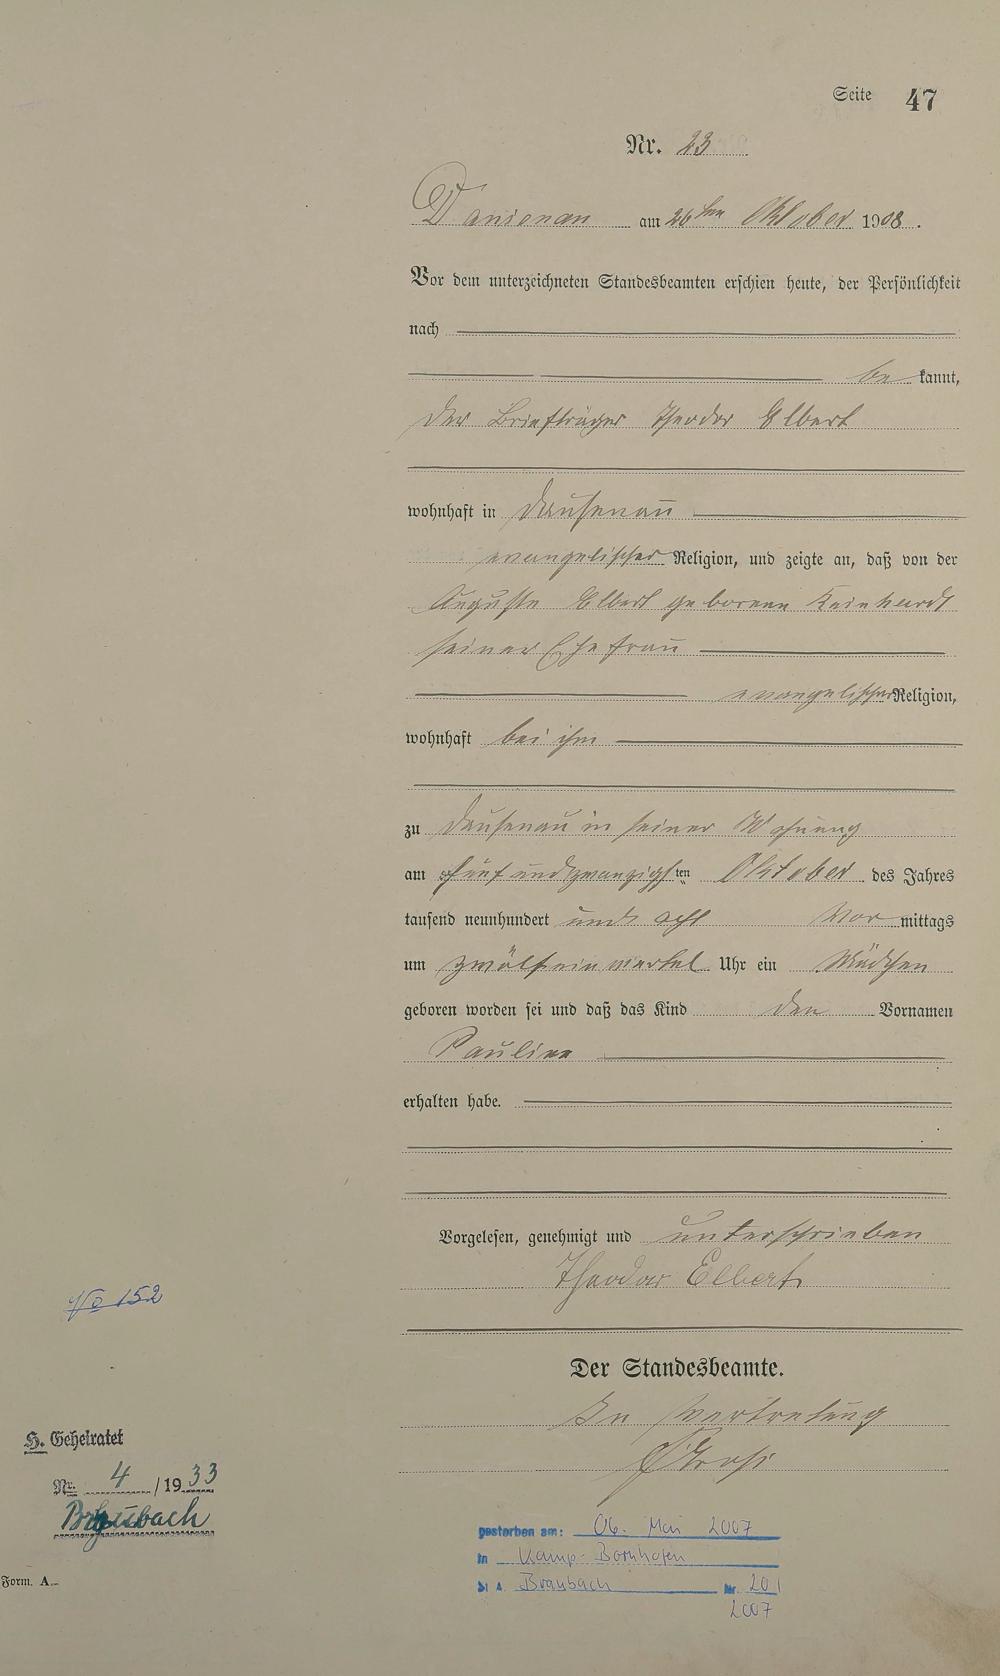 Seite 47
Nr. 23
Dausenau am 26ten Oktober 1908.
Vor dem unterzeichneten Standesbeamten erschien heute, der Persönlichkeit
nach
be kannt,
der Briefträger Theodor Elbert
wohnhaft in Dausenau
evangelischer Religion, und zeigte an, daß von der
Auguste Elbert geborene Reinhardt
seiner Ehefrau
evangelischer Religion,
wohnhaft bei ihm
zu Dausenau in seiner Wohnung
am fünfundzwanzigsten Oktober des Jahres
tausend neunhundert und acht Vor mittags
um zwölfeinviertel Uhr ein Mädchen
geboren worden sei und daß das Kind den Vornamen
Pauline
erhalten habe.
Vorgelesen, genehmigt und unterschrieben
Theodor Elbert
Der Standesbeamte.
In Vertretung
No 152
H. Geheiratet
Nr. 4 / 1933
Braubach
gestorben am: 06. Mai 2007
in Kamp-Bornhofen
St A. Braubach Nr. 20 /
2007
Form. A.